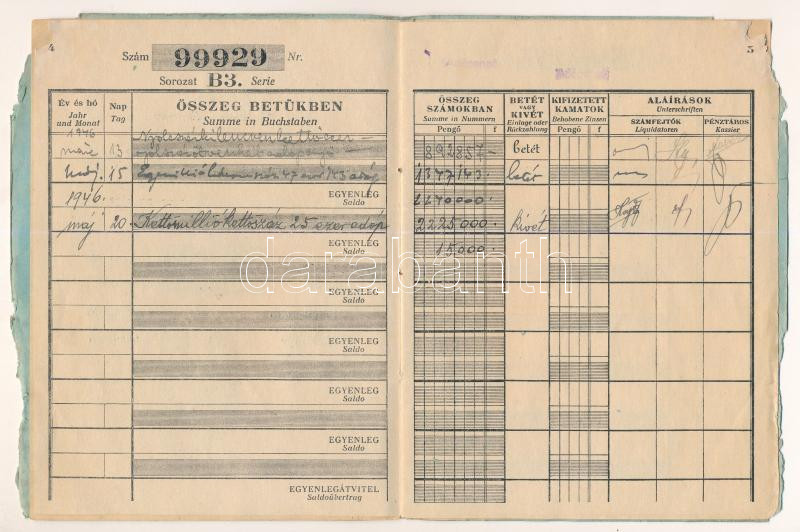 4
5
Szám 99929 Nr.
Sorozat B3. Serie
Év és hó
Jahr
und Monat
Nap
Tag
ÖSSZEG BETŰKBEN
Summe in Buchstaben
ÖSSZEG
SZÁMOKBAN
Summe in Nummern
Pengő f
BETÉT
VAGY
KIVÉT
Einlage oder
Rückzahlung
KIFIZETETT
KAMATOK
Behobene Zinsen
Pengő f
ALÁÍRÁSOK
Unterschriften
SZÁMFEJTŐK
Liquidatoren
PÉNZTÁROS
Kassier
1946
márc 13
892857 betét
máj. 15
1377143 betét
EGYENLEG
Saldo
2240000
1946.
máj 20 Kettőmilliókettőszáz 25 ezer adóp.
2225000 kivét
EGYENLEG
Saldo
15000
EGYENLEG
Saldo
EGYENLEG
Saldo
EGYENLEG
Saldo
EGYENLEG
Saldo
EGYENLEGÁTVITEL
Saldoübertrag
darabanth